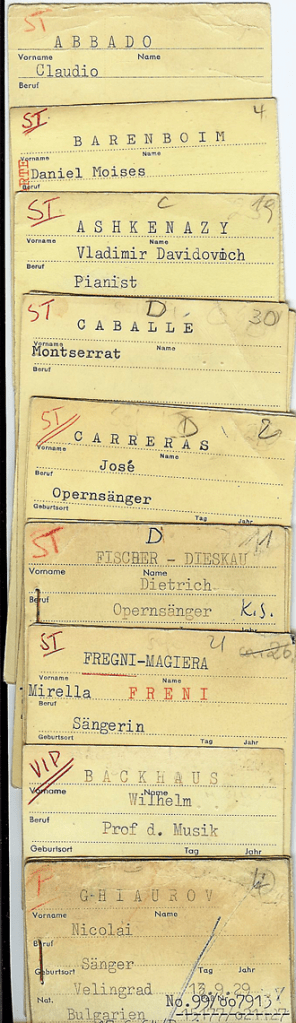 ST
ABBADO
Vorname Name
Claudio
Beruf
ST 4
BARENBOIM
Vorname Name
Daniel Moises
Beruf
ST C 19
ASHKENAZY
Vorname Name
Vladimir Davidovich
Beruf
Pianist
ST D 30
CABALLE
Vorname Name
Montserrat
Beruf
ST D 2
CARRERAS
Vorname Name
José
Beruf
Opernsänger
Geburtsort Tag Jahr
ST D 11
FISCHER - DIESKAU
Vorname Name
Dietrich
Beruf
Opernsänger K.S.
ST 21
FREGNI-MAGIERA
Vorname Name
Mirella FRENI
Beruf
Sängerin
Geburtsort Tag Jahr
VIP
BACKHAUS
Vorname Name
Wilhelm
Beruf
Prof d. Musik
Geburtsort Tag Jahr
GHIAUROV
Vorname Name
Nicolai
Beruf
Sänger
Geburtsort Tag Jahr
Velingrad 13.9.29
Nat.
Bulgarien